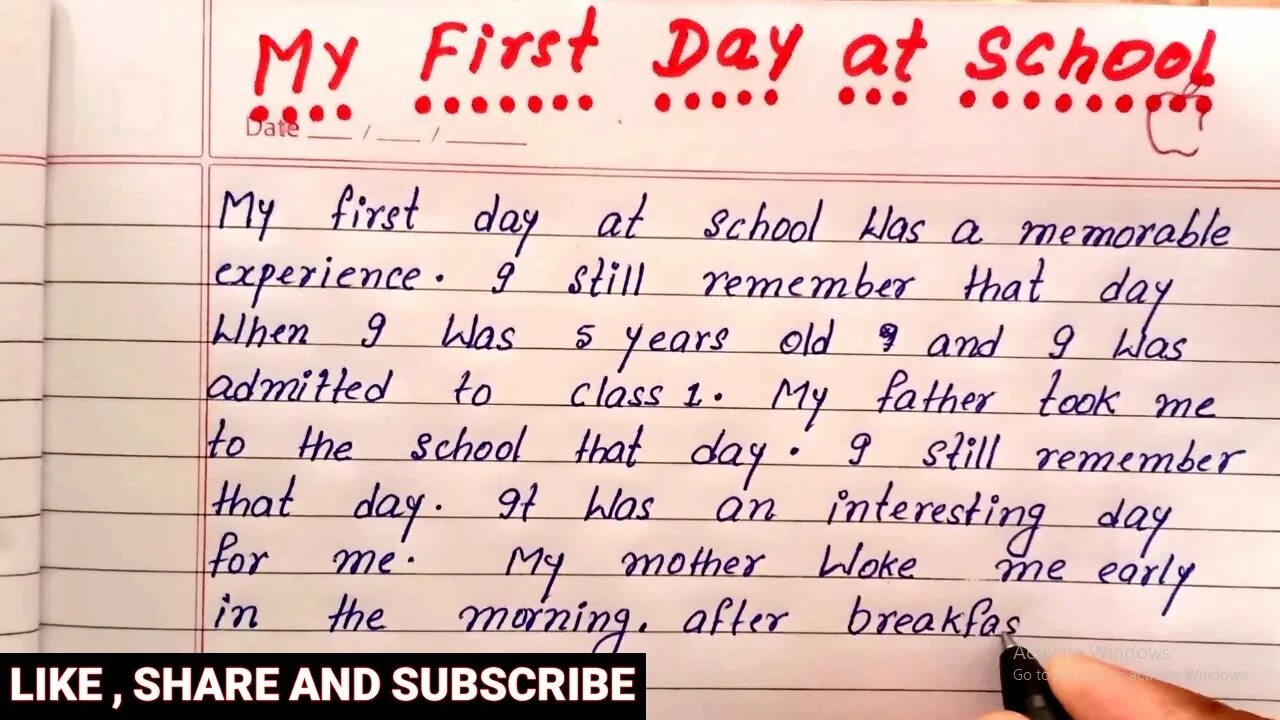 My First Day at School
Date __ / __ / ____
My first day at school was a memorable
experience. I still remember that day
When I was 5 years old and I was
admitted to class 1. My father took me
to the school that day. I still remember
that day. It was an interesting day
for me. My mother woke me early
in the morning. after breakfas
Activate Windows
Go to to activate Windows.
LIKE , SHARE AND SUBSCRIBE